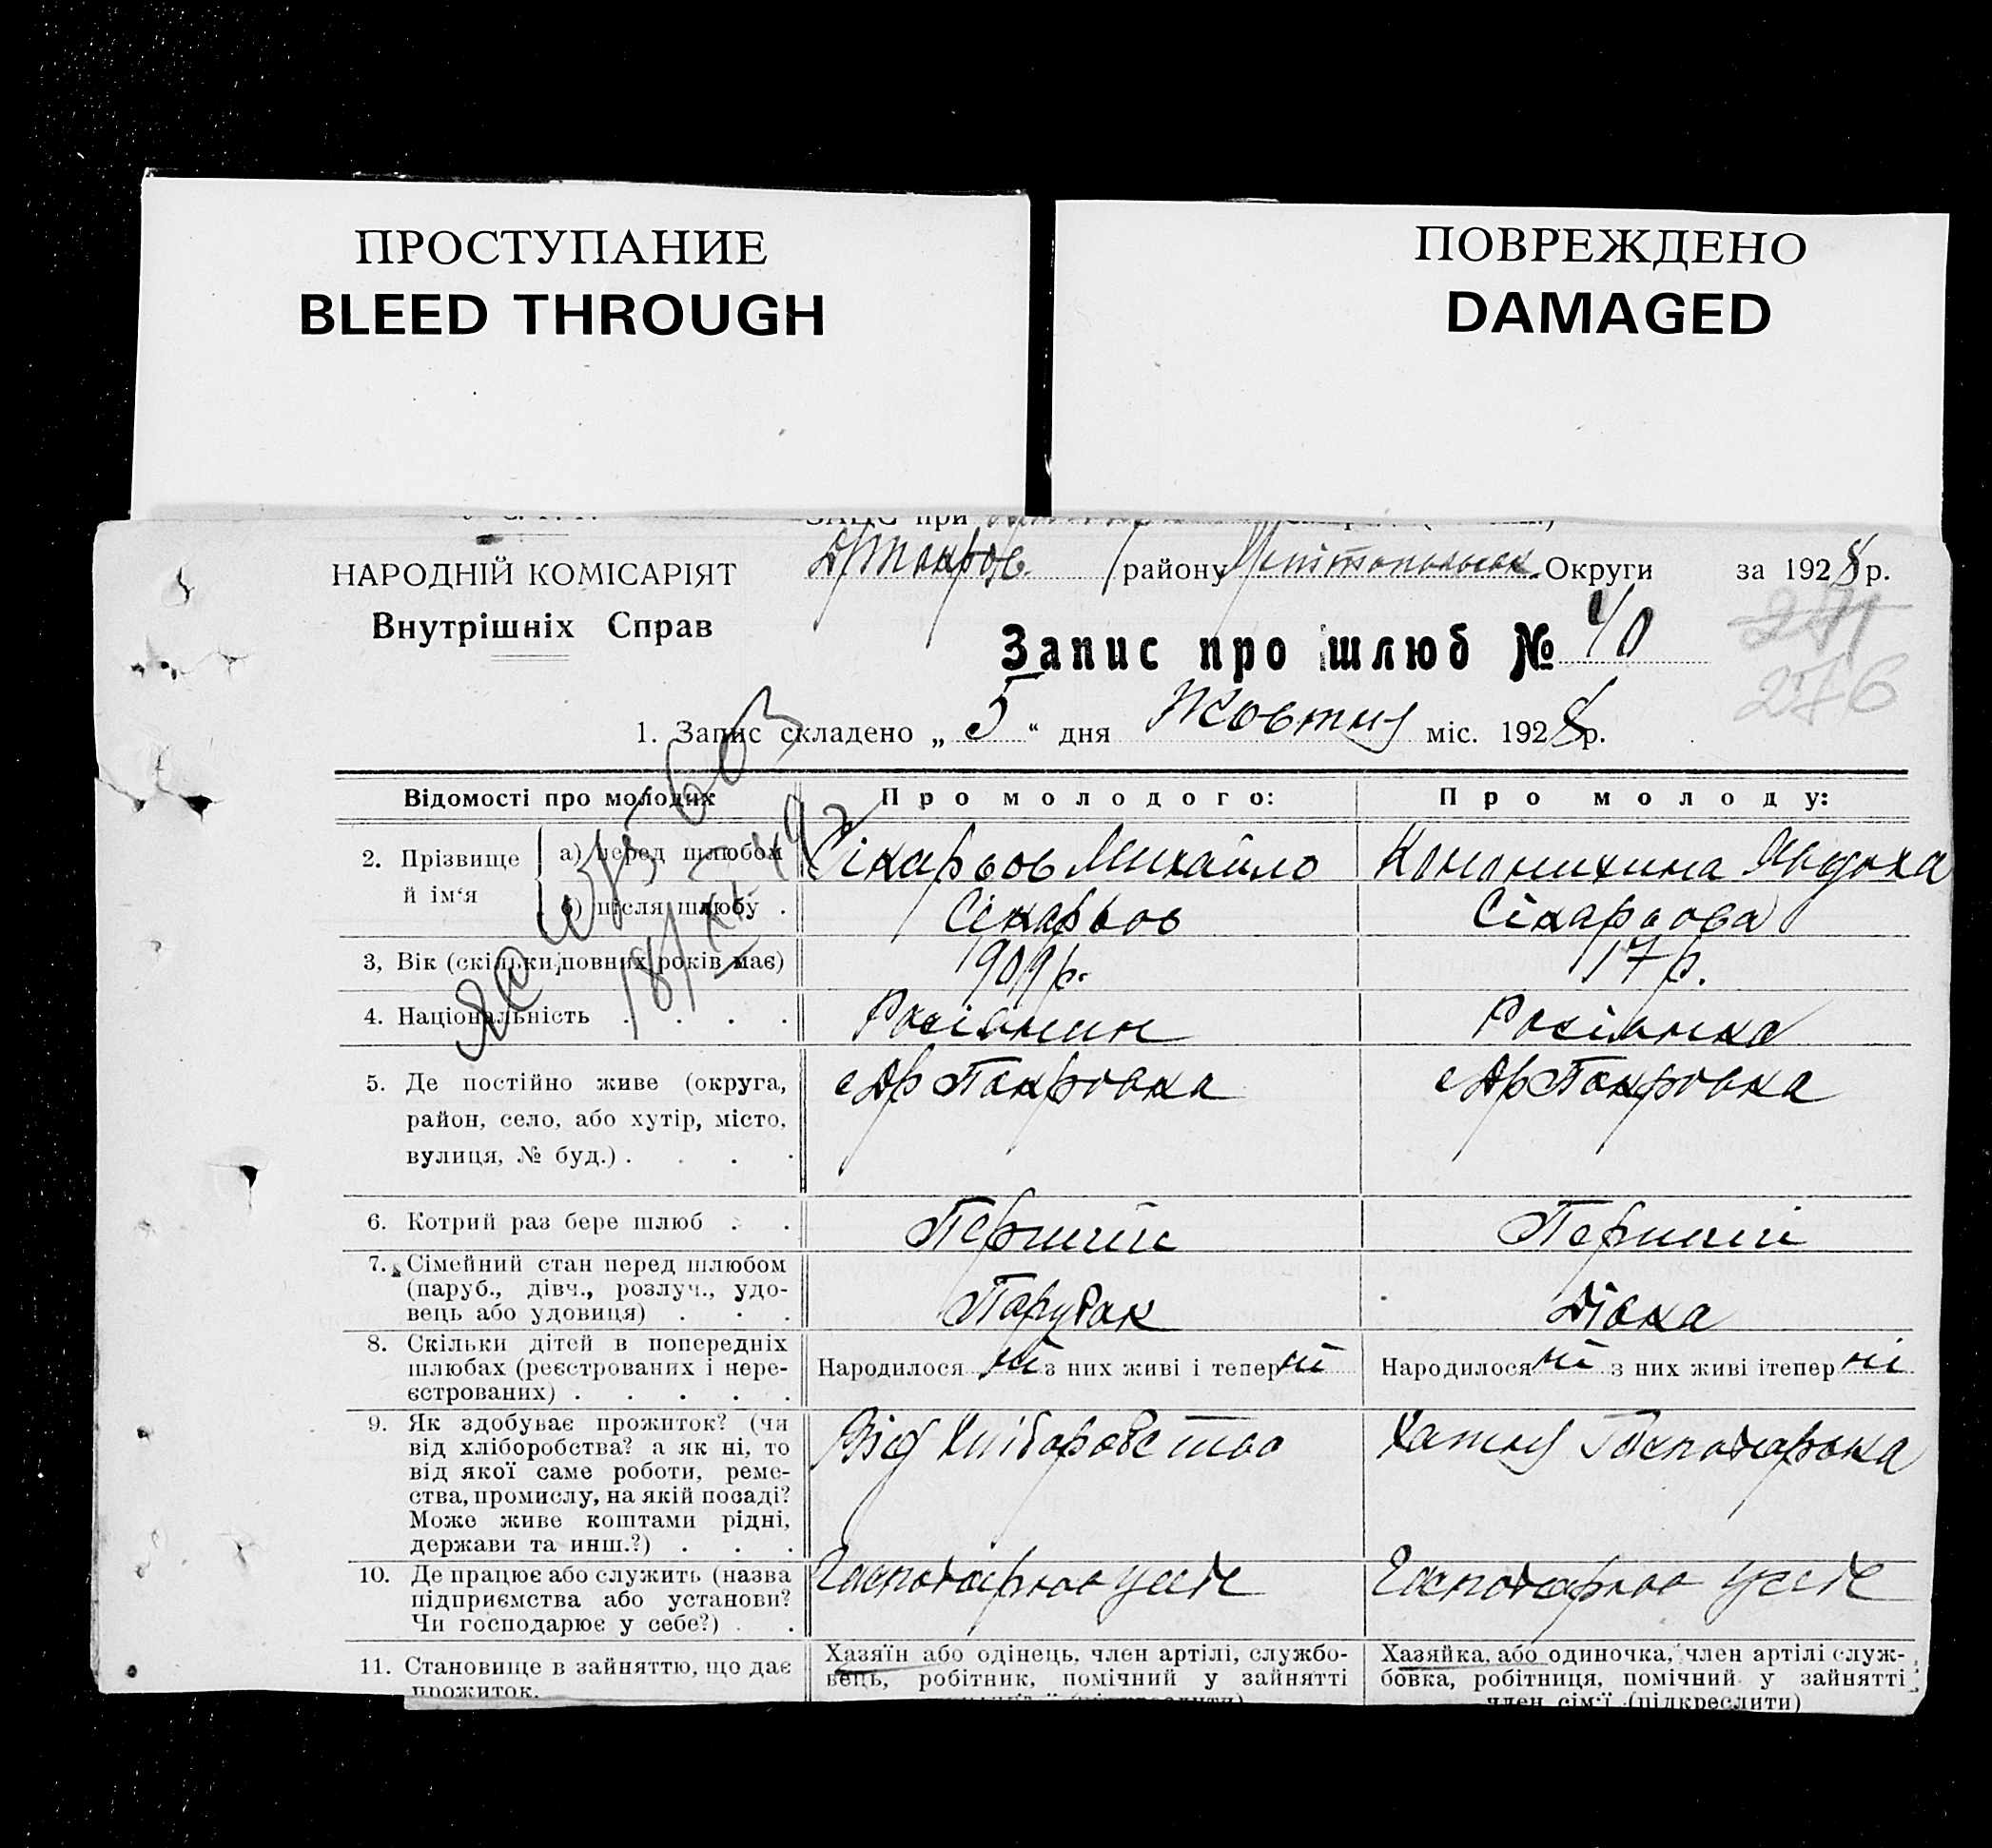 ПРОСТУПАНИЕ
BLEED THROUGH
ПОВРЕЖДЕНО
DAMAGED
ЗАЦС при
НАРОДНІЙ КОМІСАРІЯТ
Внутрішніх Справ
району Округи за 1928 р.
Запис про шлюб № 40
271
276
1. Запис складено „ 5 “ дня Жовтня міс. 1928 р.
Відомості про молодих
Про молодого:
Про молоду:
2. Прізвище й ім‘я
а) перед шлюбом
Сікарьов Михайло
Явдоха
б) після шлюбу .
Сікарьов
Сікарьова
3, Вік (скільки повних років має)
1909 р.
17 р.
4. Національність . . . .
Росіянин
Росіянка
5. Де постійно живе (округа,
район, село, або хутір, місто,
вулиця, № буд.) . . . .
с Др Покровка
с Др Покровка
6. Котрий раз бере шлюб . .
Перший
Перший
7. Сімейний стан перед шлюбом
(паруб., дівч., розлуч., удо-
вець або удовиця) . . .
Парубак
Дівка
8. Скільки дітей в попередніх
шлюбах (реєстрованих і нере-
єстрованих) . . . . .
Народилося ні з них живі і тепер ні
Народилося ні з них живі ітепер ні
9. Як здобуває прожиток? (чи
від хліборобства? а як ні, то
від якої саме роботи, реме-
ства, промислу, на якій посаді?
Може живе коштами рідні,
держави та инш.?) . . .
Від Хліборобство
Хатня Господарока
10. Де працює або служить (назва
підприємства або установи?
Чи господарює у себе?) . .
Господарюо у себе
Господарюо у себе
11. Становище в зайняттю, що дає
прожиток.
Хазяїн або одінець, член артілі, службо-
вець, робітник, помічний у зайнятті
Хазяйка, або одиночка, член артілі служ-
бовка, робітниця, помічний у зайнятті
член сім‘ї (підкреслити)